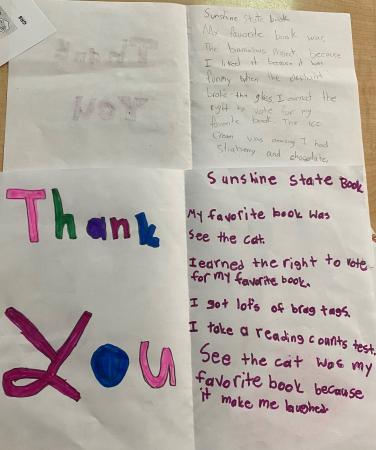 Thank
You
Sunshine State Book
My favorite book was
The Project because
I liked it because it was
funny when the
broke the glass I earned the
right to vote for my
favorite book The ice
cream was amazing I had
and chocolate.
Thank
You
Sunshine State Book
My favorite book was
see the cat.
I earned the right to vote
for my favorite book.
I got lots of brag tags.
I take a reading counts test.
See the cat was my
favorite book because
it make me laughed.